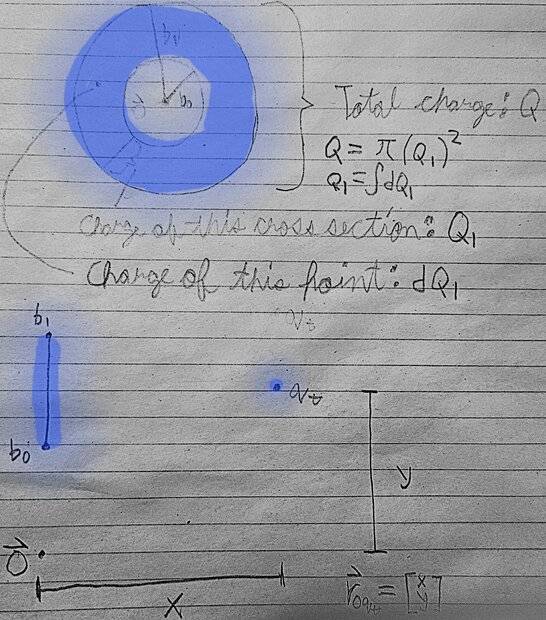 b₁
b₀
O⃗
Total charge: Q
Q = π(Q₁)²
Q₁ = ∫dQ₁
Charge of this cross section: Q₁
Charge of this point: dQ₁
q_t
b₁
q_t
b₀
y
O⃗
x
r⃗_{Oq_t} = [x y]